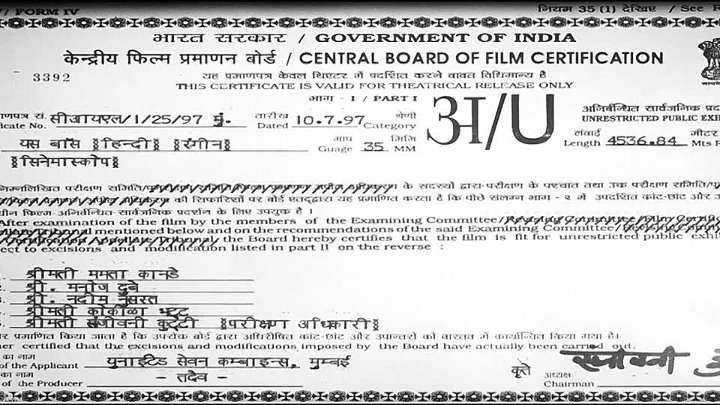 / FORM IV नियम 35 (1) देखिए / See R
भारत सरकार / GOVERNMENT OF INDIA
केन्द्रीय फिल्म प्रमाणन बोर्ड / CENTRAL BOARD OF FILM CERTIFICATION
3392 यह प्रमाणपत्र केवल थिएटर में प्रदर्शित करने बाबत विधिमान्य है
THIS CERTIFICATE IS VALID FOR THEATRICAL RELEASE ONLY
भाग - I / PART I
णपत्र सं. सीआयएल/1/25/97 मुं. तारीख श्रेणी अ/U अनिर्बन्धित सार्वजनिक प्रद
ficate No. Dated 10.7.97 Category UNRESTRICTED PUBLIC EXHI
यस बॉस (हिन्दी) (रंगीन) माप मिमि लंबाई मीटर
Guage 35 MM Length 4536.84 Mts F
(सिनेमास्कोप)
निम्नलिखित परीक्षण समिति/ के सदस्यों द्वारा परीक्षण के पश्चात तथा उक्त परीक्षण समिति/
की सिफारिशों पर बोर्ड एतद्द्वारा यह प्रमाणित करता है कि पीछे संलग्न भाग - २ में उपदर्शित कांट-छांट और उ
धीन फिल्म अनिर्बन्धित सार्वजनिक प्रदर्शन के लिए उपयुक्त है ।
After examination of the film by the members of the Examining Committee/Revising Committee/Film Certific
Tribunal mentioned below and on the recommendations of the said Examining Committee/Revising Commit
Appellate Tribunal, the Board hereby certifies that the film is fit for unrestricted public exhi
ect to excisions and modification listed in part II on the reverse :
श्रीमती ममता कानडे
श्री. मनोज दुबे
श्री. नदीम नुसरत
श्रीमती कोकीळा भट्ट
श्रीमती संजीवनी कुट्टी (परीक्षण अधिकारी)
र प्रमाणित किया जाता है कि उपरोक्त बोर्ड द्वारा अधिरोपित कांट-छांट और उपान्तरों को वास्तव में कार्यान्वित किया गया है।
her certified that the excisions and modifications imposed by the Board have actually been carried out.
का नाम युनाइटेड सेवन कम्बाइन्स, मुम्बई
of the Applicant
का नाम - तदैव - कृते अध्यक्ष
of the Producer Chairman